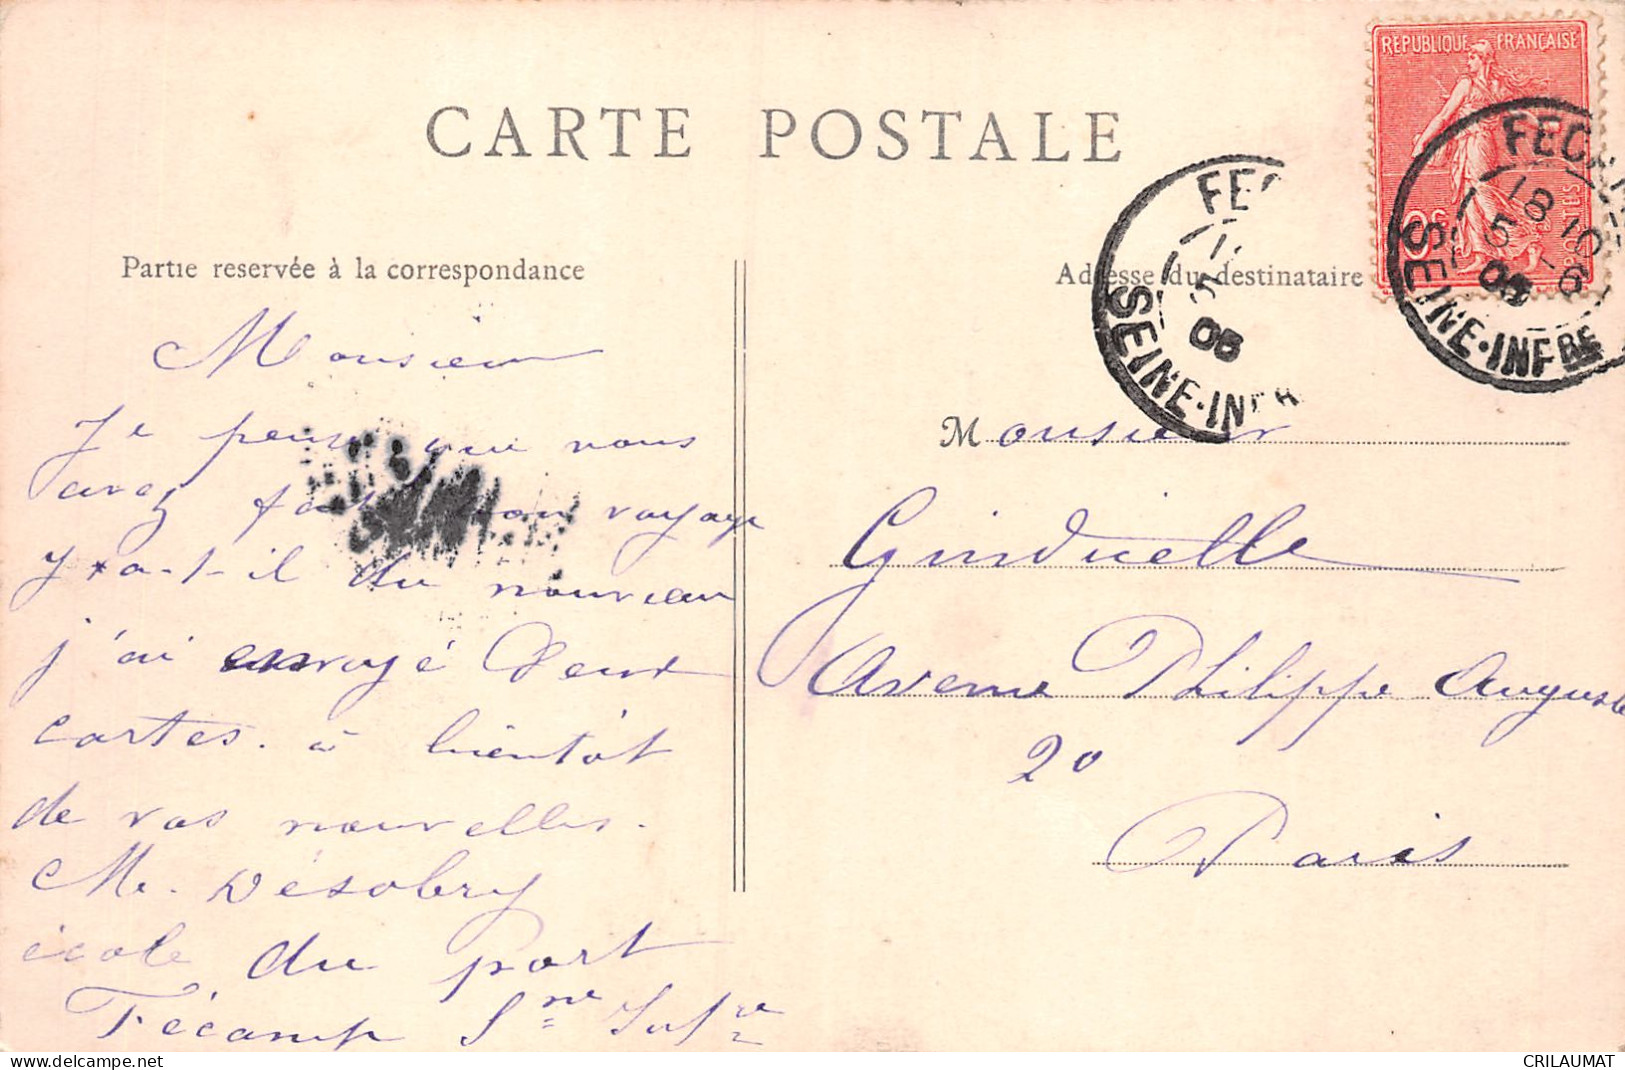 CARTE POSTALE
RÉPUBLIQUE FRANÇAISE
POSTES
FEC
SEINE-INFRE
18 10
5 -6
05
FE
05
SEINE-INFR
Partie reservée à la correspondance
Adresse du destinataire
Monsieur
Je pense que vous
avez fait bon voyage
y a-t-il du nouveau
j'ai envoyé deux
cartes. à bientôt
de vos nouvelles.
Me. Désobry
école du port
Fécamp Sne Infre
Monsieur
Ginduelle
Avenue Philippe Auguste
20
Paris
delcampe.net
CRILAUMAT